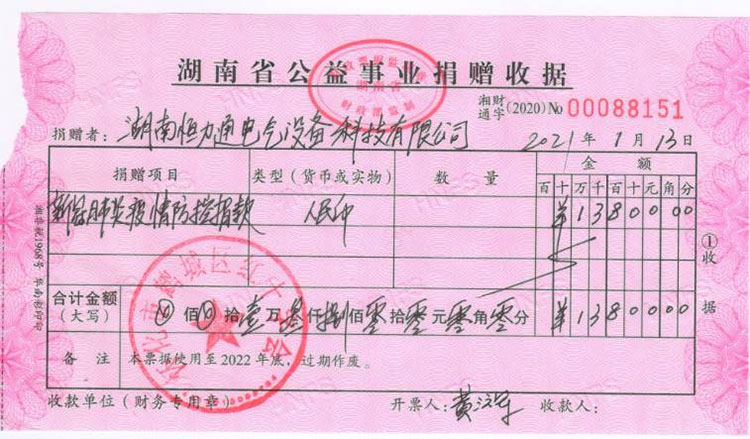 湖南省公益事业捐赠收据
湘财通字(2020)No 00088151
捐赠者：湖南恒力通电气设备科技有限公司 2021年1月13日
捐赠项目 类型（货币或实物） 数量 金额
百十万千百十元角分
新冠肺炎疫情防控捐款 人民币 ¥1380000
合计金额（大写） 佰 拾壹万叁仟捌佰零拾零元零角零分 ¥1380000
备注 本票据使用至2022年底，过期作废。
收款单位（财务专用章） 开票人： 收款人：
①收据
市鹤城区红十字会